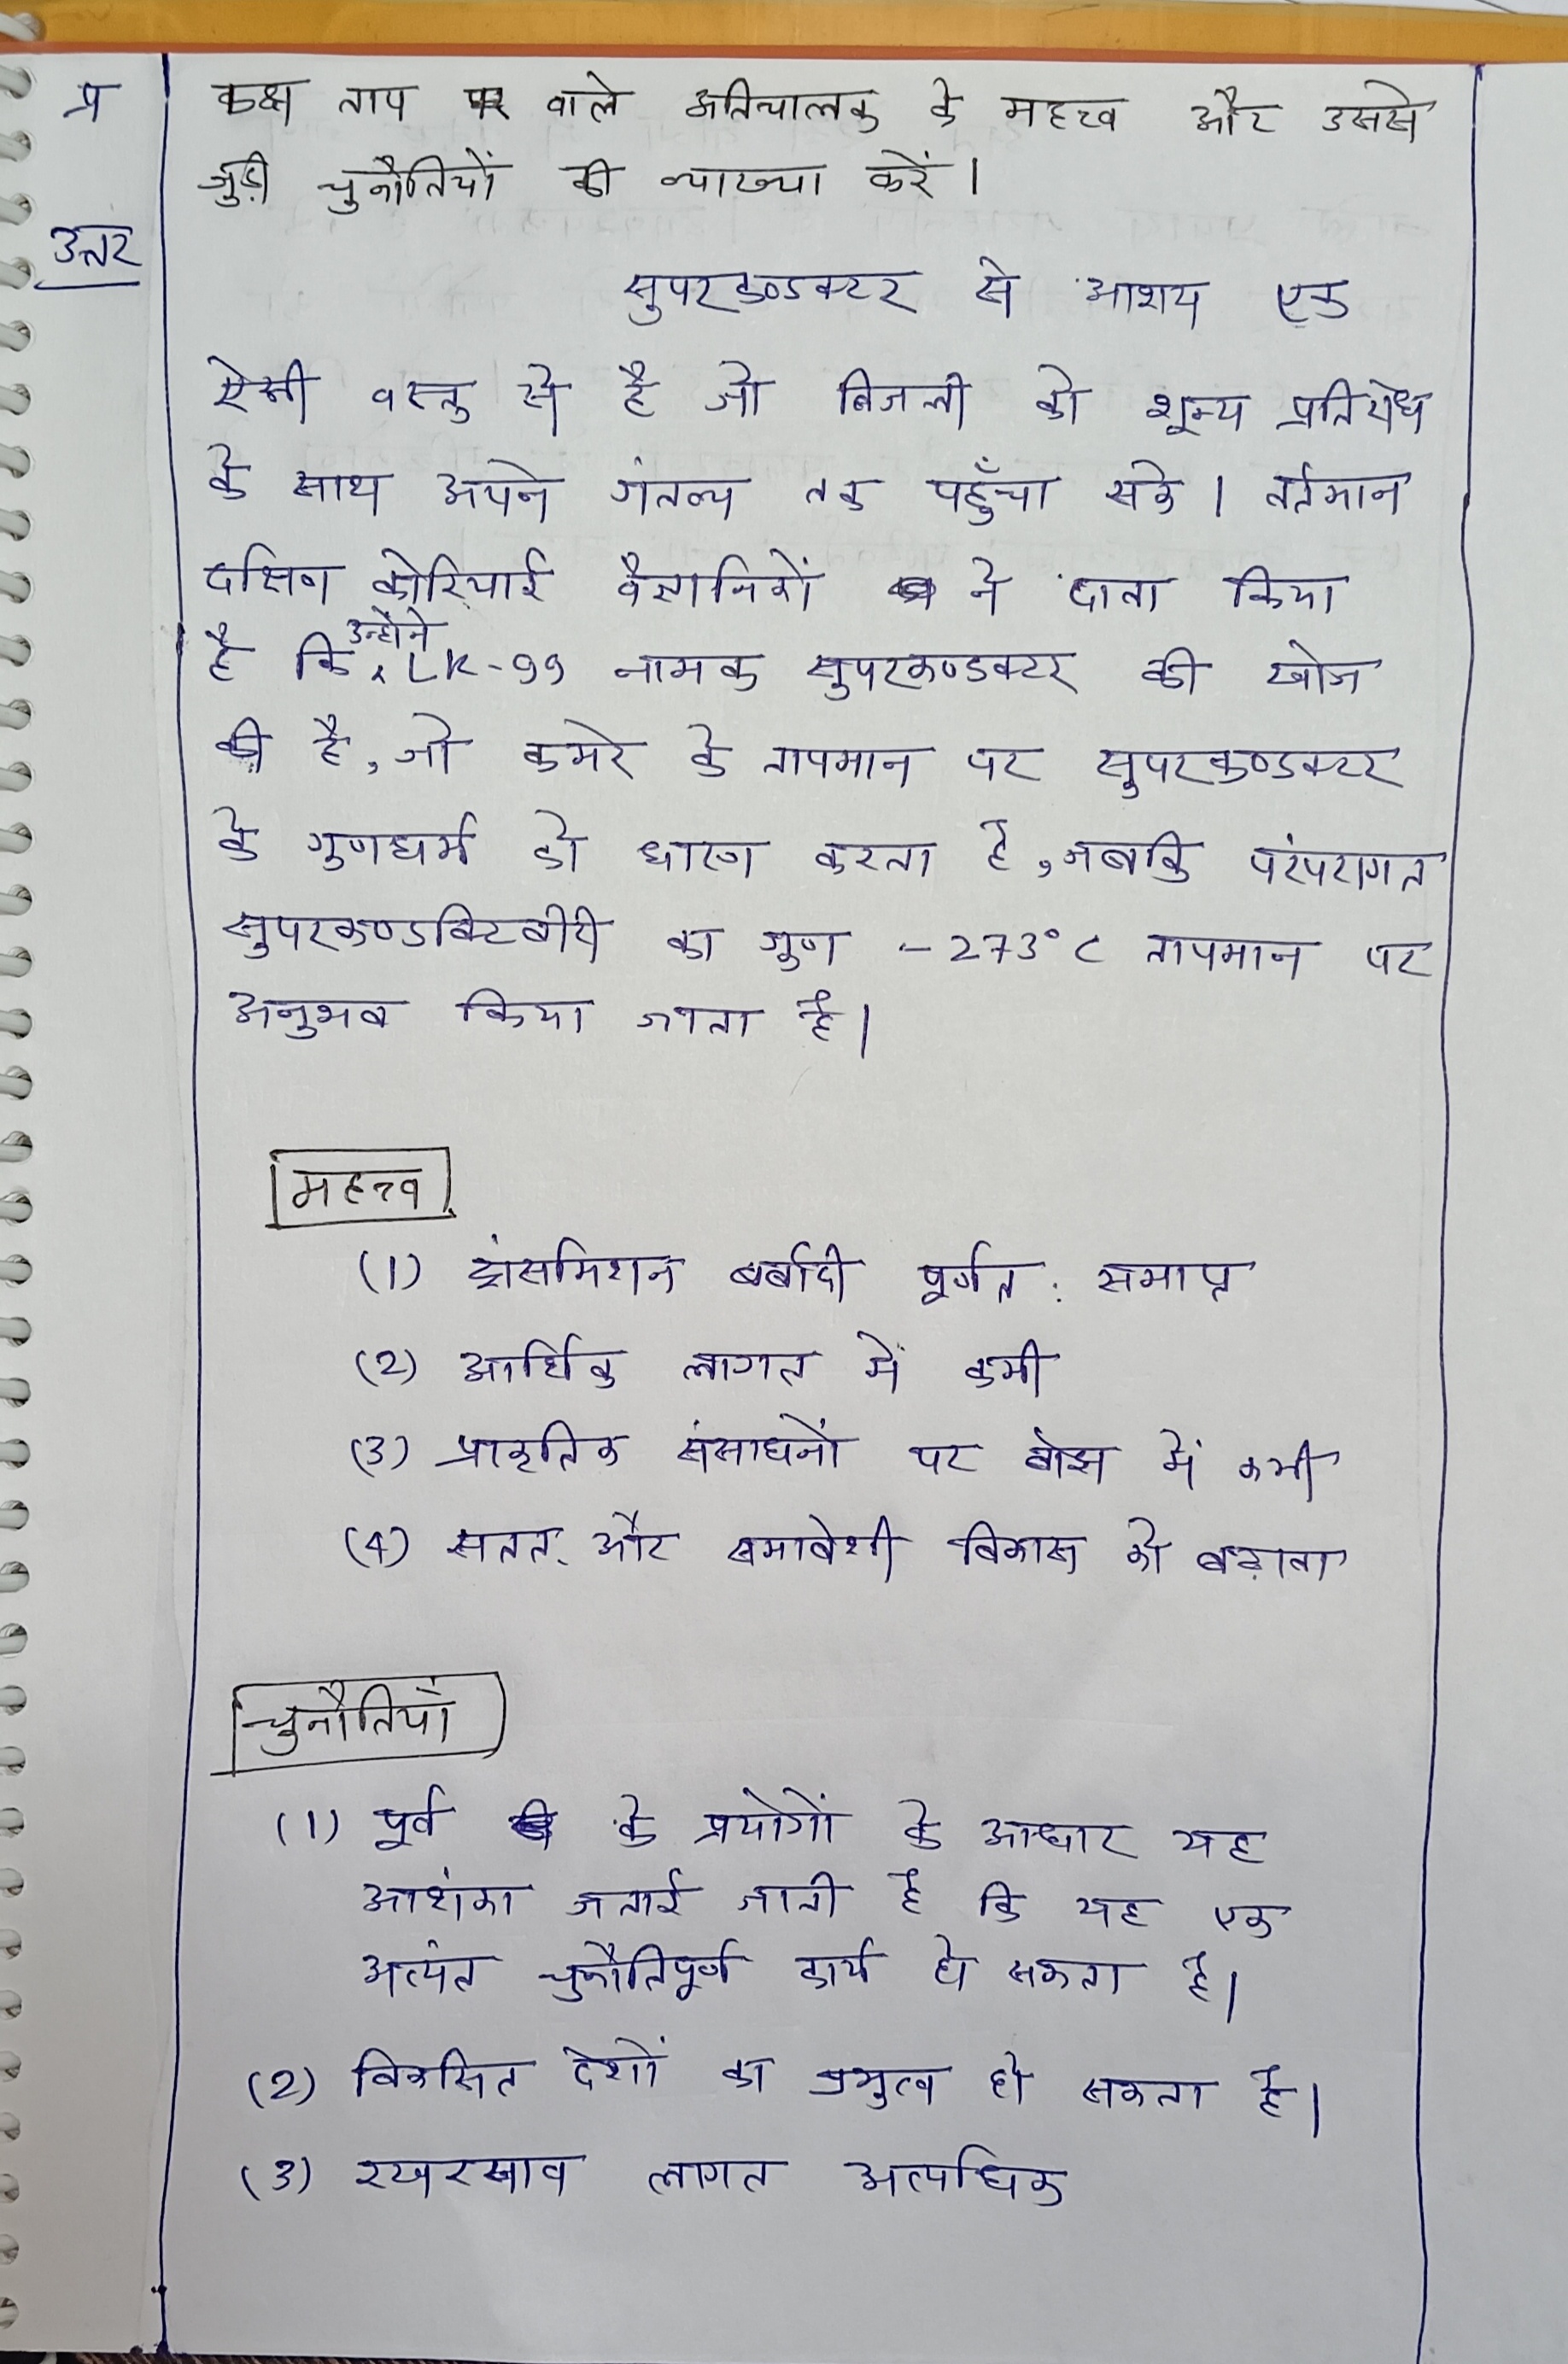 प्र
कक्ष ताप वाले अतिचालक के महत्त्व और उससे
जुड़ी चुनौतियों की व्याख्या करें।
उत्तर
सुपरकण्डक्टर से आशय एक
ऐसी वस्तु से है जो बिजली को शून्य प्रतिरोध
के साथ अपने गंतव्य तक पहुँचा सके। वर्तमान
दक्षिण कोरियाई वैज्ञानिकों ने दावा किया
है कि उन्होंने LK-99 नामक सुपरकण्डक्टर की खोज
की है, जो कमरे के तापमान पर सुपरकण्डक्टर
के गुणधर्म को धारण करता है, जबकि परंपरागत
सुपरकण्डक्टिवीटी का गुण -273°C तापमान पर
अनुभव किया जाता है।
महत्त्व
(1) ट्रांसमिशन बर्बादी पूर्णत: समाप्त
(2) आर्थिक लागत में कमी
(3) प्राकृतिक संसाधनों पर बोझ में कमी
(4) सतत् और समावेशी विकास को बढ़ावा
चुनौतियाँ
(1) पूर्व के प्रयोगों के आधार यह
आशंका जताई जाती है कि यह एक
अत्यंत चुनौतिपूर्ण कार्य हो सकता है।
(2) विकसित देशों का प्रभुत्व हो सकता है।
(3) रखरखाव लागत अत्यधिक